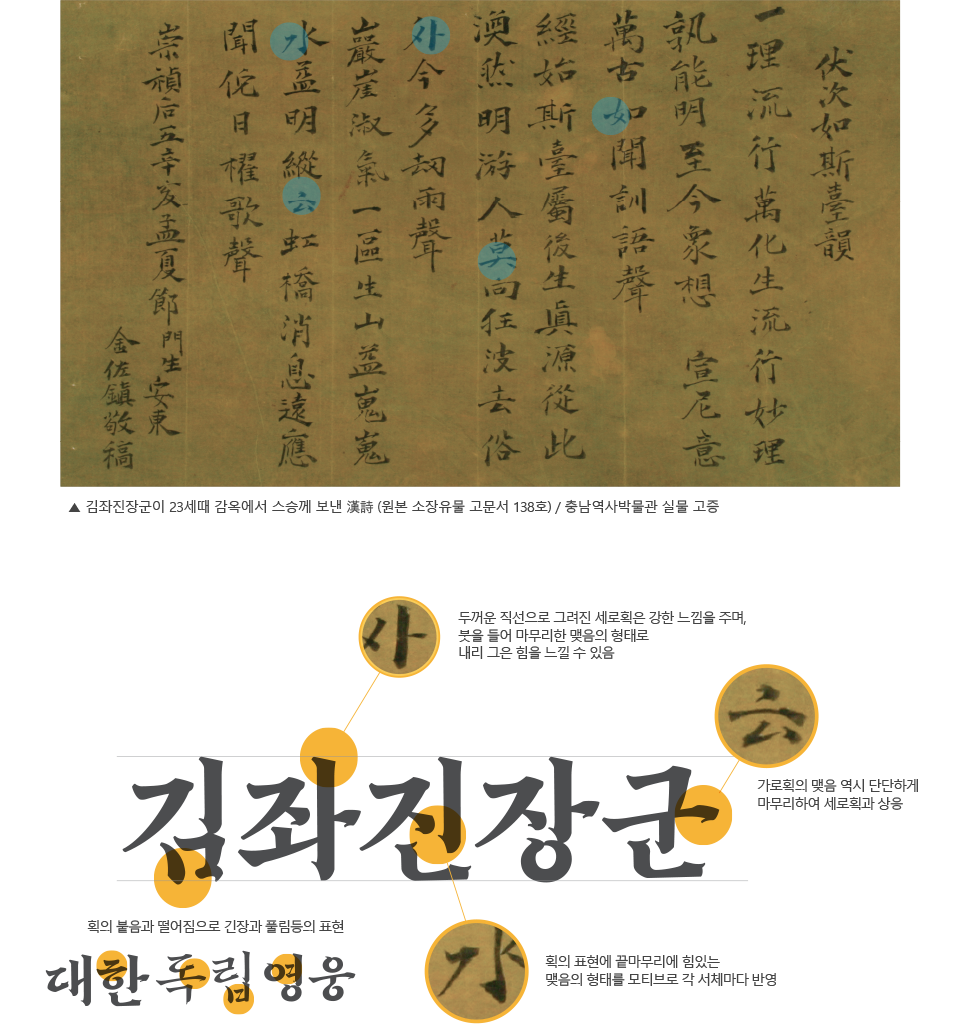 伏次如斯臺韻
一理流行萬化生流行妙理
孰能明至今象想 宣尼意
萬古如聞訓語聲
經始斯臺屬後生眞源從此
渙然明游人莫向狂波去俗
外今多刼雨聲
巖崖淑氣一區生山益嵬嵬
水益明縱云虹橋消息遠應
聞佗日櫂歌聲
崇禎后五辛亥孟夏節 門生安東
金佐鎭敬稿
▲ 김좌진장군이 23세때 감옥에서 스승께 보낸 漢詩 (원본 소장유물 고문서 138호) / 충남역사박물관 실물 고증
두꺼운 직선으로 그려진 세로획은 강한 느낌을 주며,
붓을 들어 마무리한 맺음의 형태로
내리 그은 힘을 느낄 수 있음
云
김좌진장군
가로획의 맺음 역시 단단하게
마무리하여 세로획과 상응
획의 붙음과 떨어짐으로 긴장과 풀림등의 표현
대한독립영웅
획의 표현에 끝마무리에 힘있는
맺음의 형태를 모티브로 각 서체마다 반영